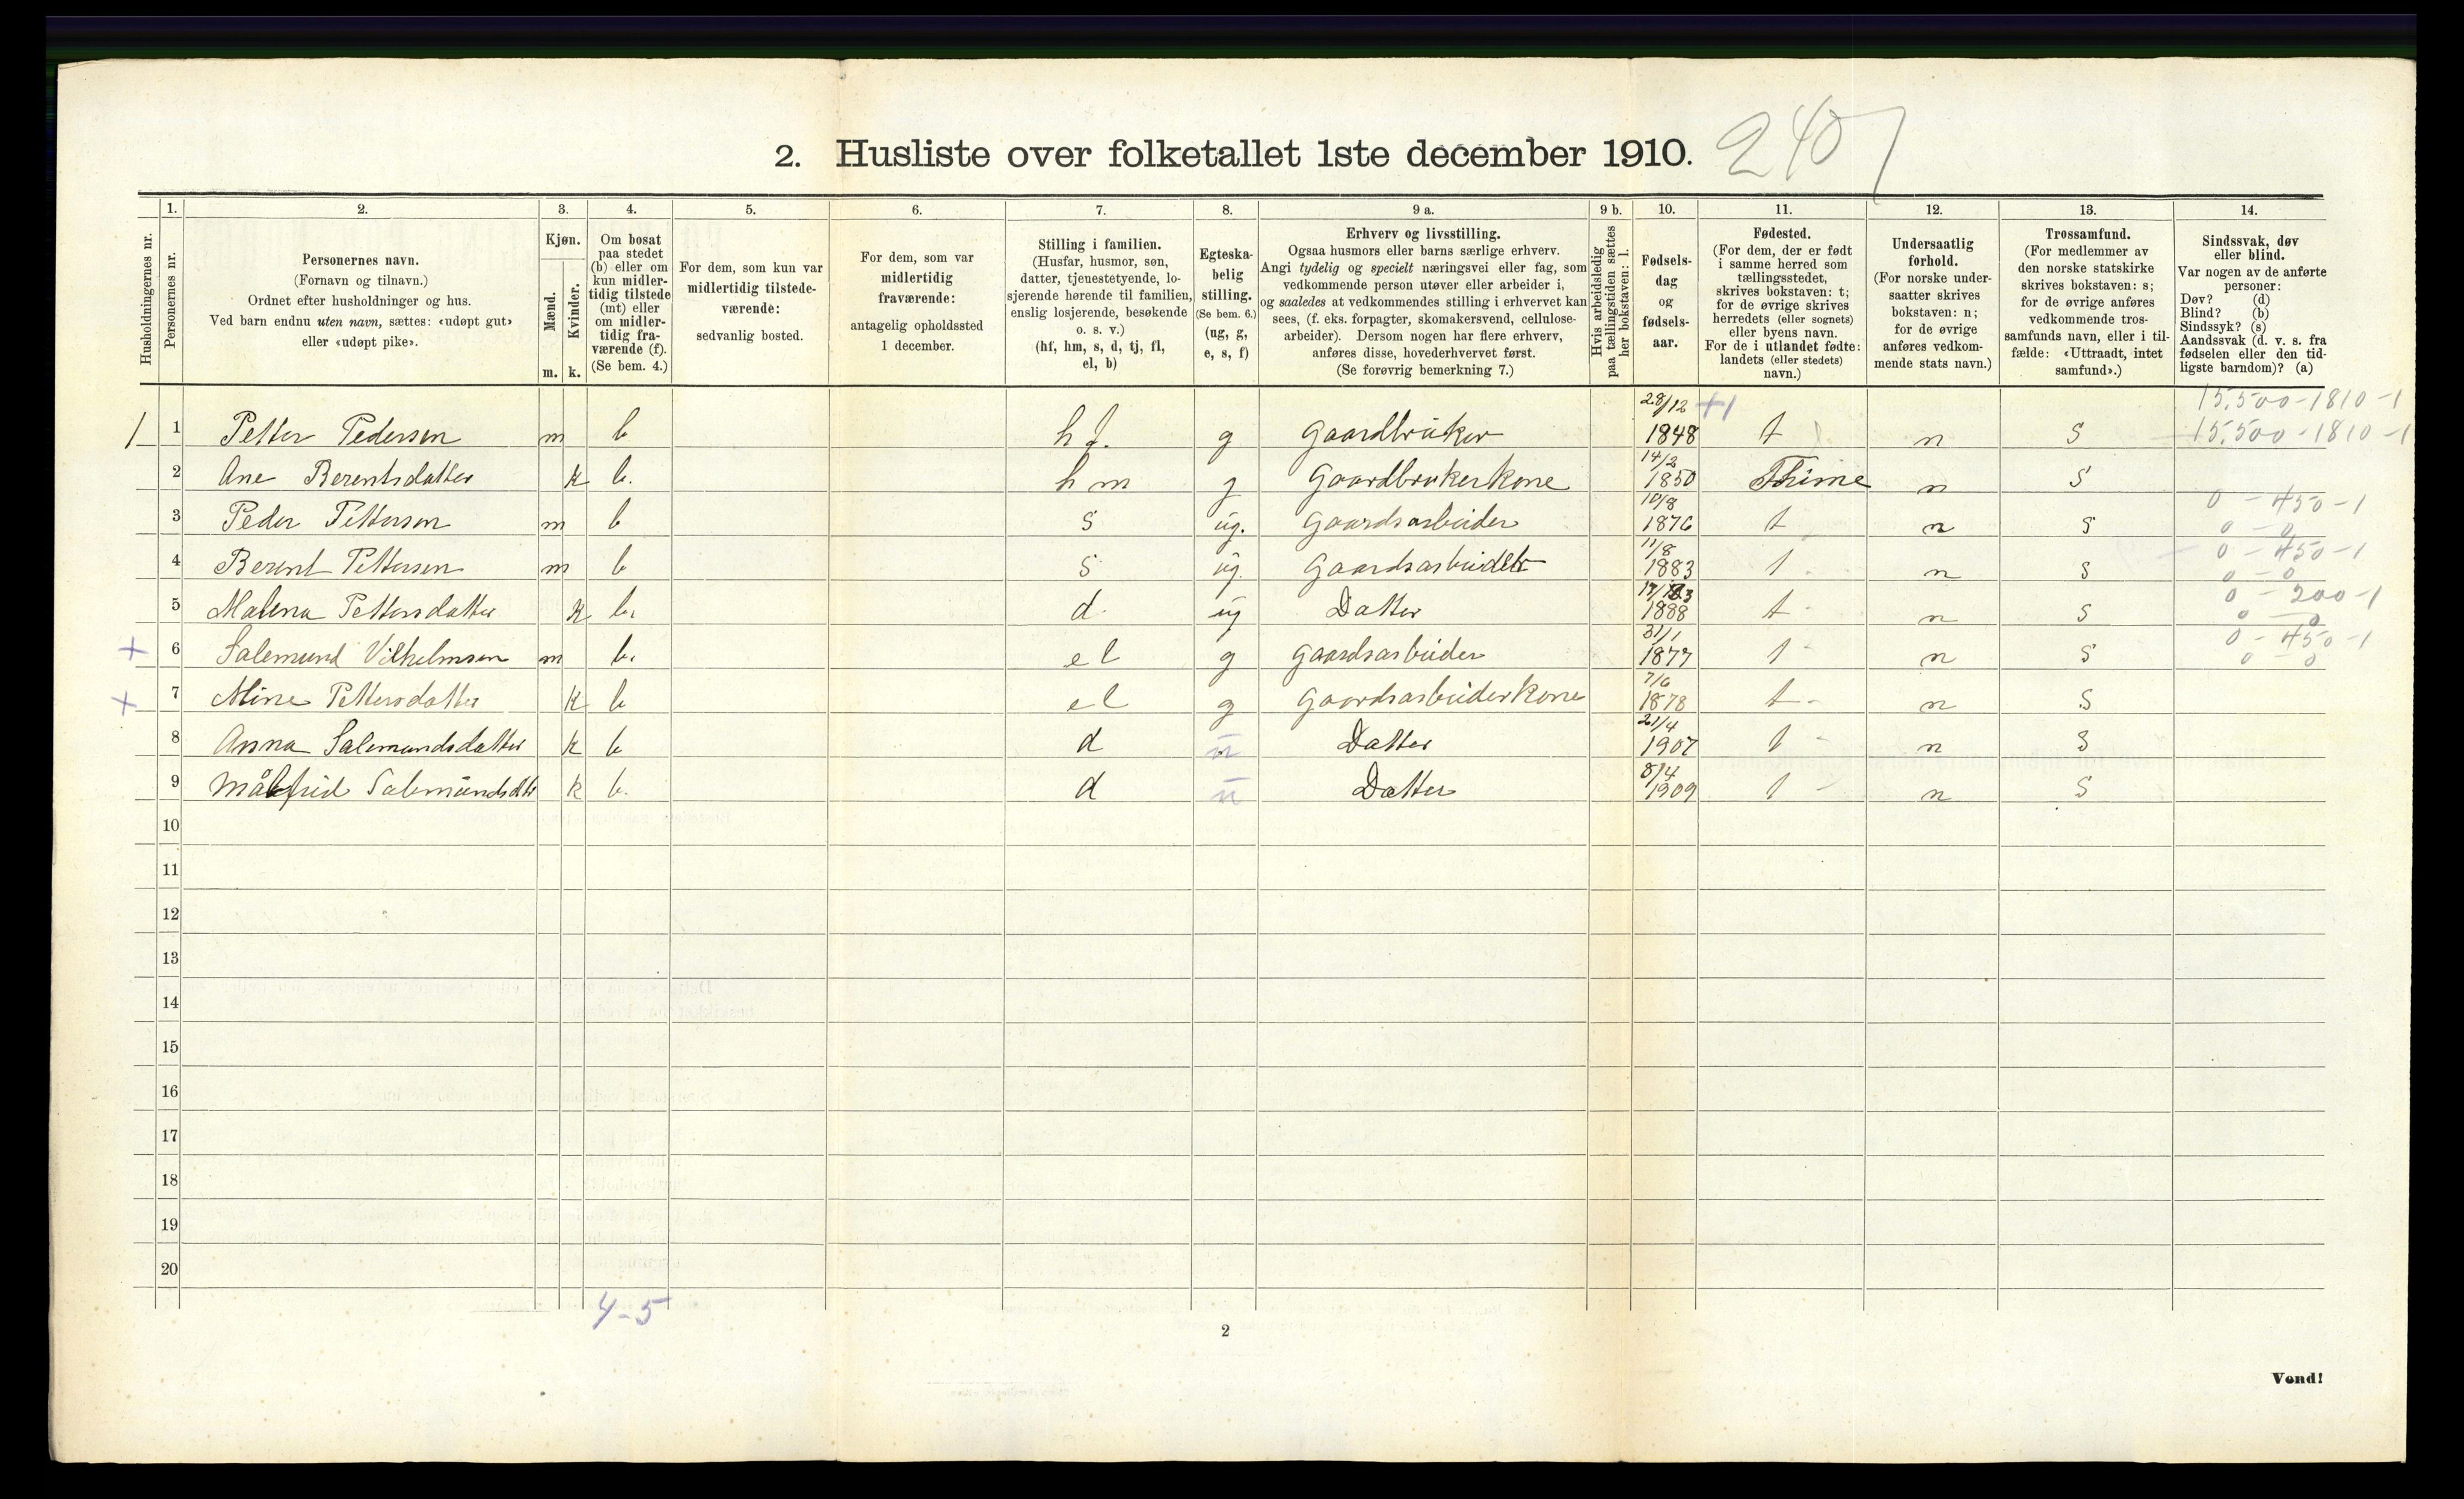 2. Husliste over folketallet 1ste december 1910. 240
Husholdningernes nr.
1. Personernes nr.
2. Personernes navn.
(Fornavn og tilnavn.)
Ordnet efter husholdninger og hus.
Ved barn endnu uten navn, sættes: «udøpt gut»
eller «udøpt pike».
3. Kjøn.
Mænd. Kvinder.
m. k.
4. Om bosat
paa stedet
(b) eller om
kun midler-
tidig tilstede
(mt) eller
om midler-
tidig fra-
værende (f).
(Se bem. 4.)
5. For dem, som kun var
midlertidig tilstede-
værende:
sedvanlig bosted.
6. For dem, som var
midlertidig
fraværende:
antagelig opholdssted
1 december.
7. Stilling i familien.
(Husfar, husmor, søn,
datter, tjenestetyende, lo-
sjerende hørende til familien,
enslig losjerende, besøkende
o. s. v.)
(hf, hm, s, d, tj, fl,
el, b)
8. Egteska-
belig
stilling.
(Se bem. 6.)
(ug, g,
e, s, f)
9 a. Erhverv og livsstilling.
Ogsaa husmors eller barns særlige erhverv.
Angi tydelig og specielt næringsvei eller fag, som
vedkommende person utøver eller arbeider i,
og saaledes at vedkommendes stilling i erhvervet kan
sees, (f. eks. forpagter, skomakersvend, cellulose-
arbeider). Dersom nogen har flere erhverv,
anføres disse, hovederhvervet først.
(Se forøvrig bemerkning 7.)
9 b. Hvis arbeidsledig
paa tællingstiden sættes
her bokstaven: l.
10. Fødsels-
dag
og
fødsels-
aar.
11. Fødested.
(For dem, der er født
i samme herred som
tællingsstedet,
skrives bokstaven: t;
for de øvrige skrives
herredets (eller sognets)
eller byens navn.
For de i utlandet fødte:
landets (eller stedets)
navn.)
12. Undersaatlig
forhold.
(For norske under-
saatter skrives
bokstaven: n;
for de øvrige
anføres vedkom-
mende stats navn.)
13. Trossamfund.
(For medlemmer av
den norske statskirke
skrives bokstaven: s;
for de øvrige anføres
vedkommende tros-
samfunds navn, eller i til-
fælde: «Uttraadt, intet
samfund».)
14. Sindssvak, døv
eller blind.
Var nogen av de anførte
personer:
Døv? (d)
Blind? (b)
Sindssyk? (s)
Aandssvak (d. v. s. fra
fødselen eller den tid-
ligste barndom)? (a)
15.500-1810-1
1 1 Petter Pedersen m b hf. g Gaardbruker 28/12 1848 +1 t n S 15.500-1810-1
2 Ane Berentsdatter k b. hm g Gaardbrukerkone 14/2 1850 Thime n S
3 Peder Pettersen m b s ug. Gaardsarbeider 10/8 1876 t n S 0-450-1 0-0
4 Berent Pettersen m b s ug. Gaardsarbeider 11/8 1883 t n S 0-450-1 0-0
5 Malena Pettersdatter k b. d. ug Datter 1888 t n S 0-200-1 0-0
+ 6 Salemund Vilhelmsen m b. el g Gaardsarbeider 31/1 1877 t n S 0-450-1 0-0
+ 7 Mine Pettersdatter k b el g Gaardsarbeiderkone 7/6 1878 t n S
8 Anna Salemundsdatter k b d u Datter 21/4 1907 t n S
9 Målfrid Salemundsdtr k b. d u Datter 8/4 1909 t n S
10
11
12
13
14
15
16
17
18
19
20
4-5
2
Vend!